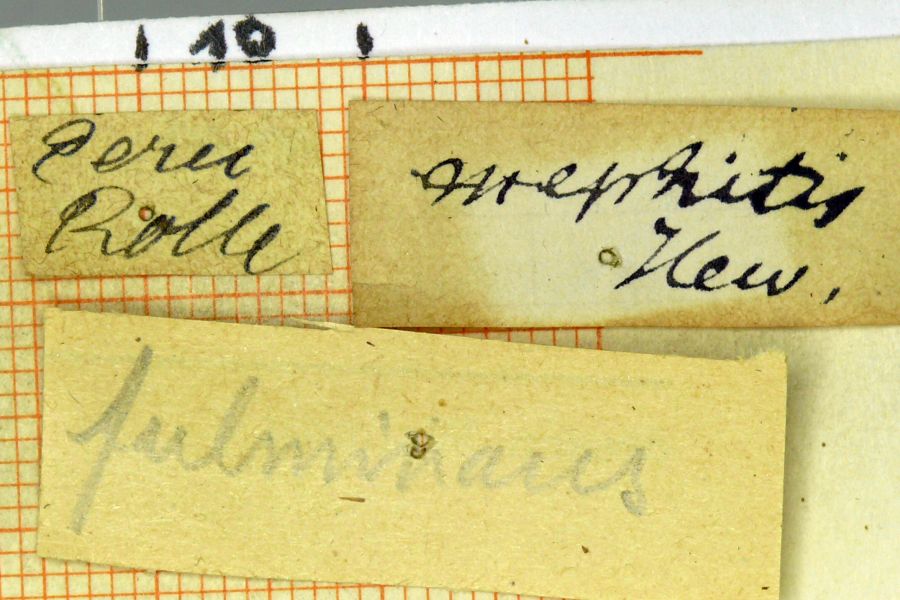 10
Peru
Rolle
mephitis
Hew.
fulminans